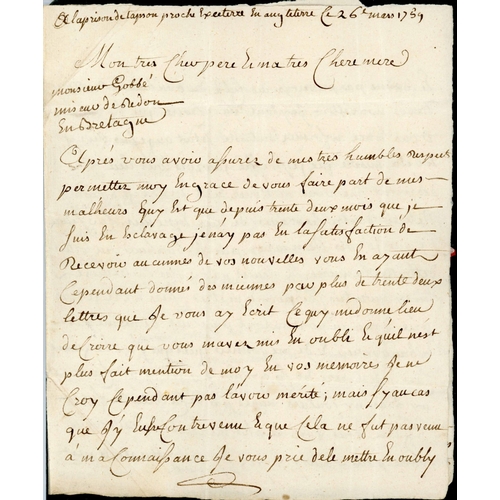 De la prison de tapson proche Excesterre En angleterre Ce 26e mars 1759
Mon tres Cher pere Et ma tres Chere mere
monsieur Gobbé
miseur de Redon
En Bretagne
Aprés vous avoir assurez de mes tres humbles Respect
permetter moy En grace de vous faire part de mes
malheurs quy Est que depuis trente deux mois que je
suis En Esclavage je nay pas En la satisfaction de
Recevoir aucunnes de vos nouvelles vous En ayant
Cependant donnés des miennes par plus de trente deux
lettres que Je vous ay Ecrit Ce quy me donne lieu
de Croire que vous mavez mis En oublie Et quil nest
plus fait mention de moy En vos memoires Je ne
Croy Cependant pas lavoir mérité; mais sy au cas
que Jy Eusse Contrevenue Et que Cela ne fut pas venue
á ma Connaissance Je vous prie de le mettre En oubly